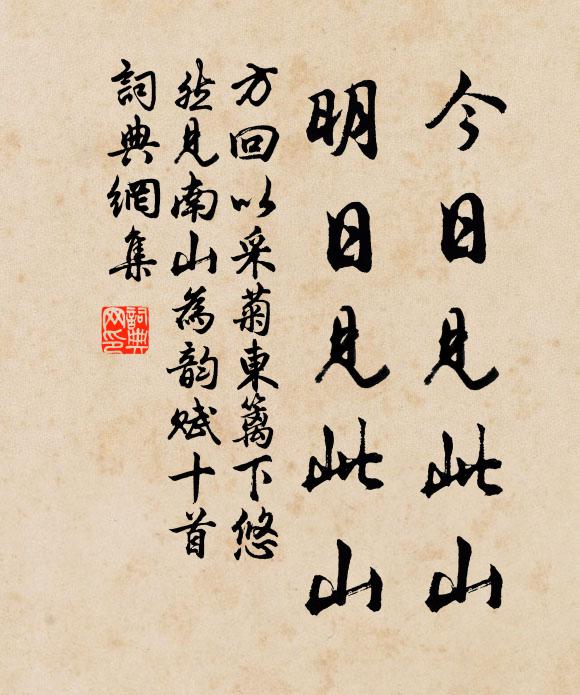 今日見此山
明日見此山
方回以采菊東籬下悠
然見南山為韵賦十首
詞典網集
詞典
网印